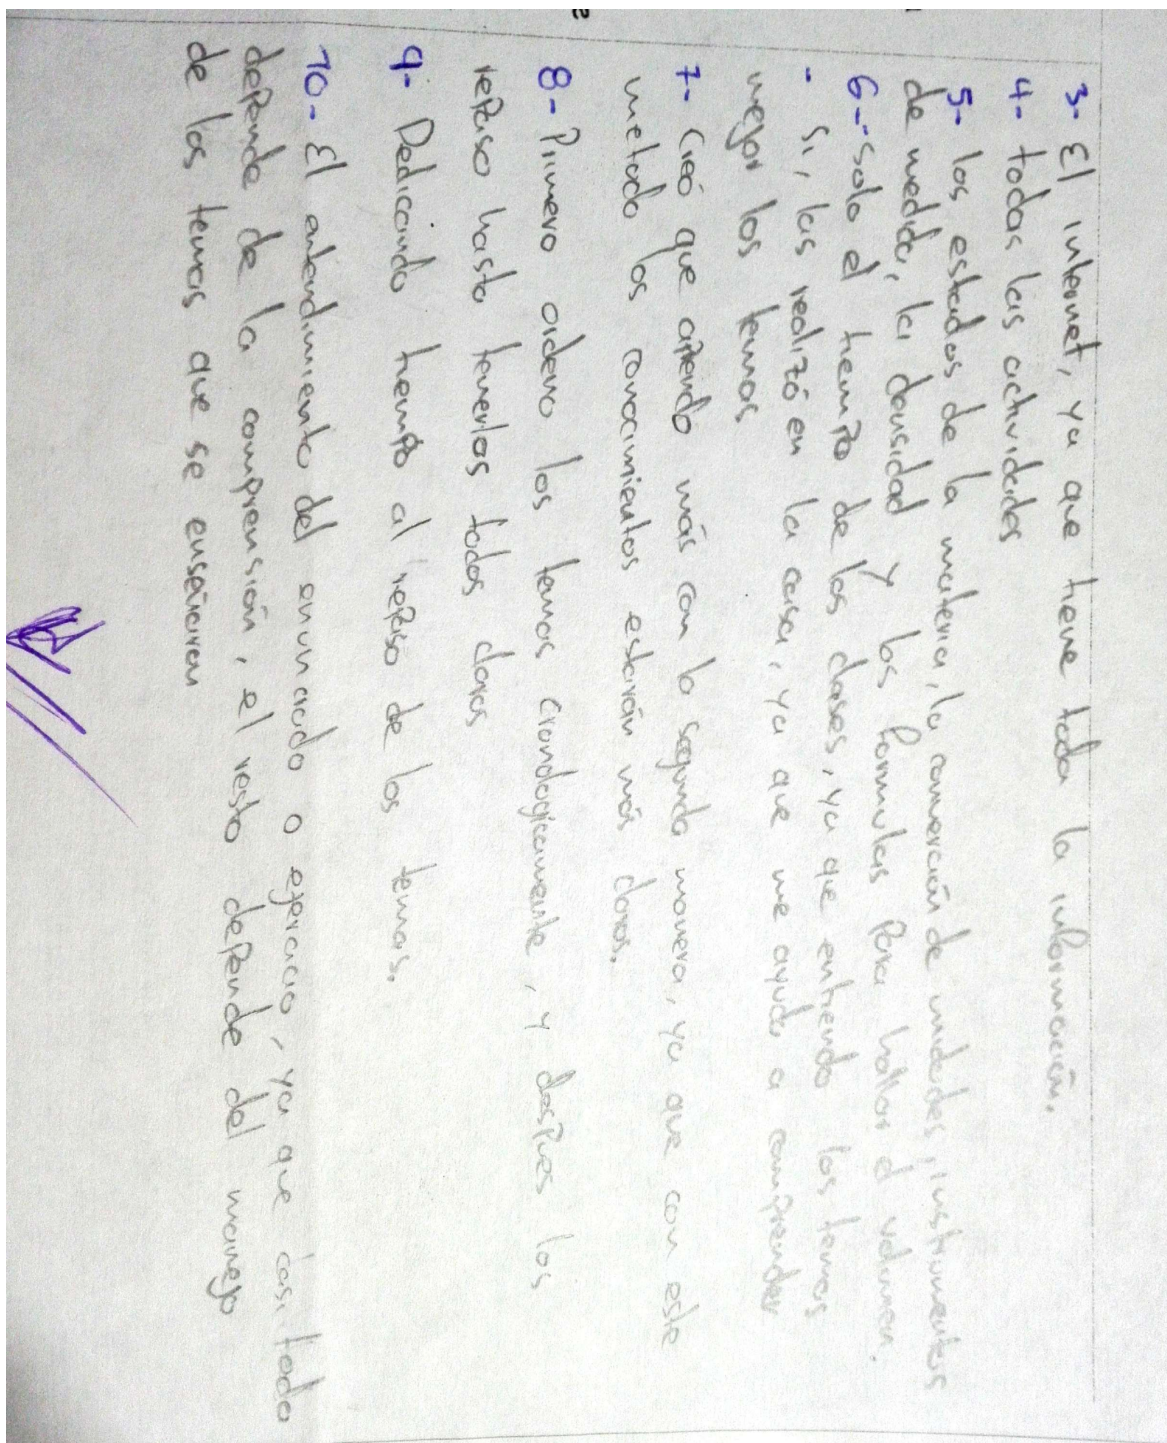 3- El internet, ya que tiene toda la información.
4- todas las actividades
5- los estados de la materia, la conversión de unidades, instrumentos
de medida, la densidad y las formulas Para hallar el volumen.
6-- solo el tiempo de las clases, ya que entiendo los temas
- si, las realizó en la casa, ya que me ayuda a comprender
mejor los temas
7- Creó que aprendo más con la segunda manera, ya que con este
metodo los conocimientos estarán más claros.
8- Primero ordeno los temas cronologicamente, y despues los
repaso hasta tenerlos todos claros
9- Dedicando tiempo al repaso de los temas.
10- El entendimiento del enunciado o ejercicio, ya que casi todo
depende de la comprensión, el resto depende del manejo
de los temas que se enseñaron